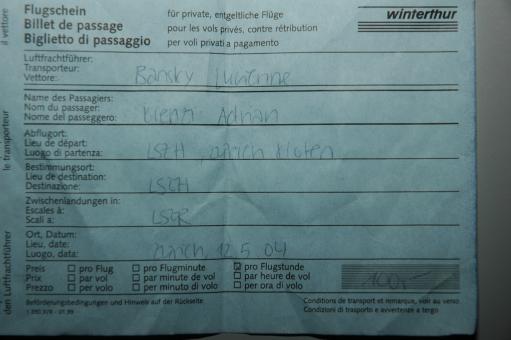 il vettore
le transporteur
den Luftfrachtführer
Flugschein
Billet de passage
Biglietto di passaggio
für private, entgeltliche Flüge
pour les vols privés, contre rétribution
per voli privati a pagamento
winterthur
Luftfrachtführer:
Transporteur:
Vettore:
Bänsky Lucienne
Name des Passagiers:
Nom du passager:
Nome del passeggero:
Adrian
Abflugort:
Lieu de départ:
Luogo di partenza:
LSZH, Zürich Kloten
Bestimmungsort:
Lieu de destination:
Destinazione:
LSZH
Zwischenlandungen in:
Escales à:
Scali a:
LSGR
Ort, Datum:
Lieu, date:
Luogo, data:
Zürich, 12.5.04
Preis
Prix
Prezzo
pro Flug
par vol
per volo
pro Flugminute
par minute de vol
per minuto di volo
pro Flugstunde
par heure de vol
per ora di volo
100.-
Beförderungsbedingungen und Hinweis auf der Rückseite
Conditions de transport et remarque, voir au verso
Condizioni di trasporto e avvertenze a tergo